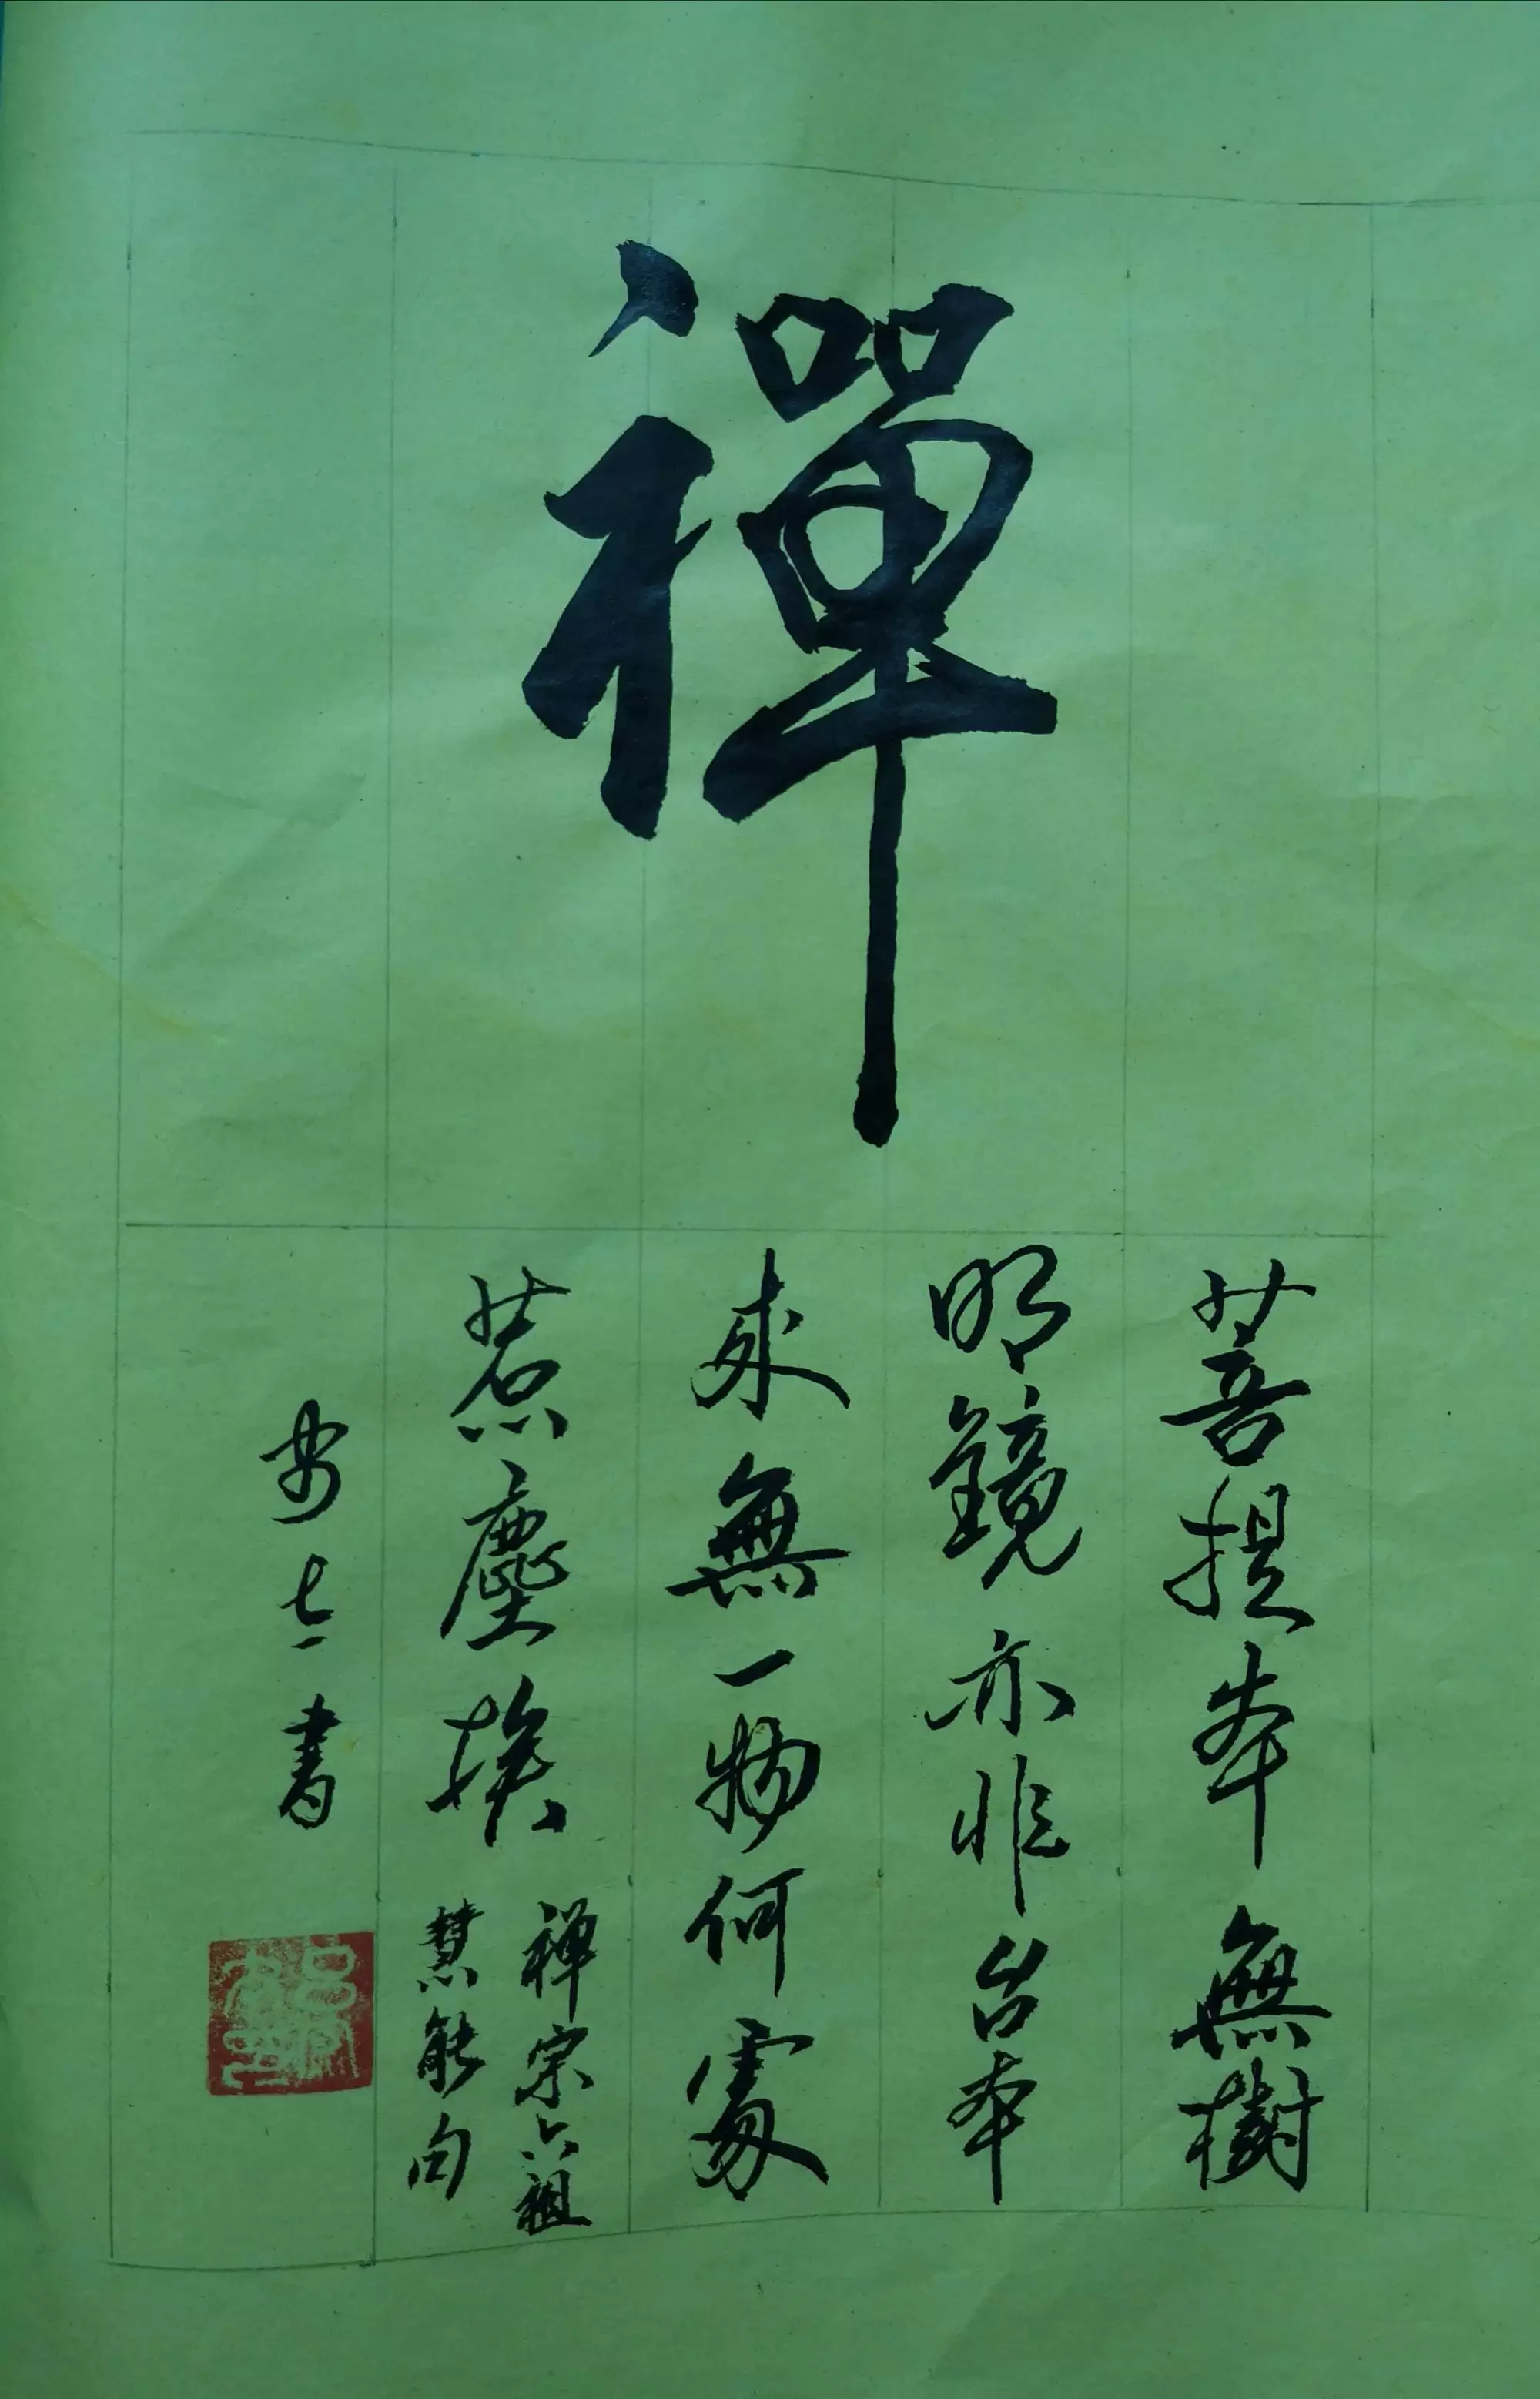 禪
菩提本無樹
明鏡亦非台本
來無一物何處
惹塵埃
禅宗六祖
慧能句
書